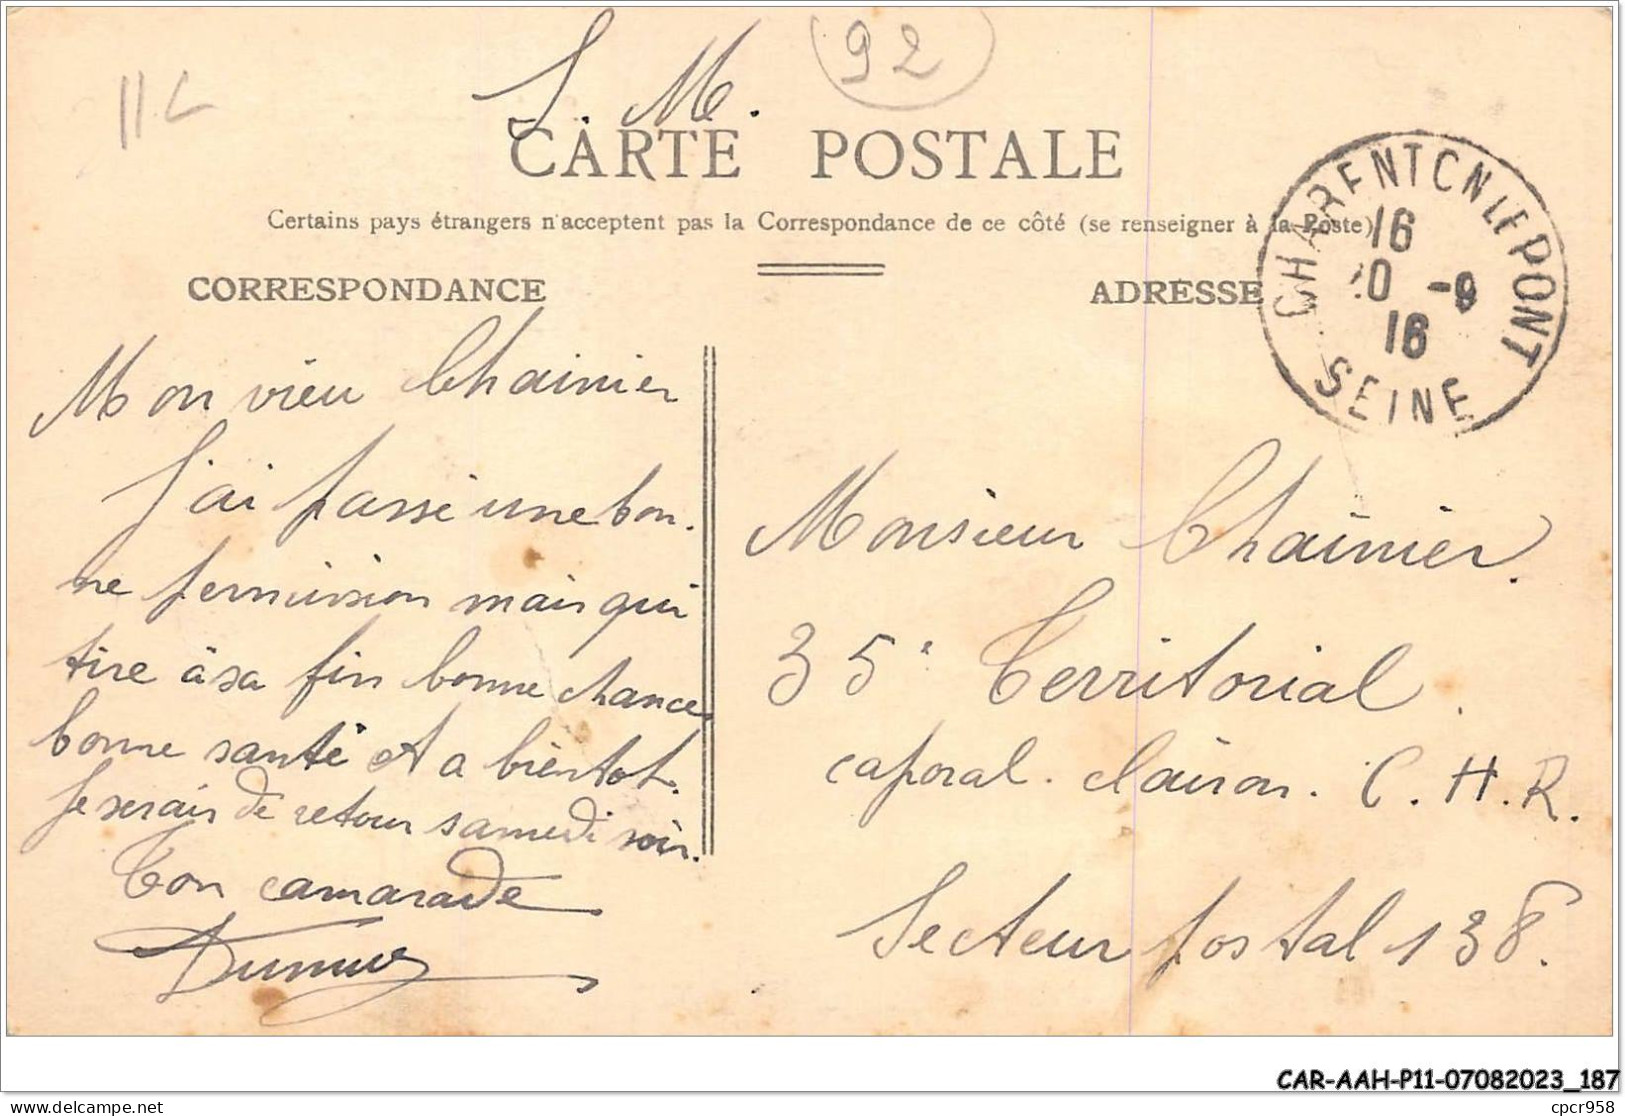 11 L
S. M.
92
CARTE POSTALE
Certains pays étrangers n'acceptent pas la Correspondance de ce côté (se renseigner à la Poste)
CORRESPONDANCE
ADRESSE
CHARENTON LE PONT
16
10 -9
16
SEINE
Mon vieu Chainier
J'ai passé une bon-
ne permission mais qui
tire à sa fin bonne chance
bonne santé et a bientot.
Je serais de retour samedi soir.
Ton camarade
Monsieur Chainier.
35e Territorial.
caporal. clairon. C.H.R.
Secteur postal 138.
CAR-AAH-P11-07082023_187
delcampe.net
cpcr958